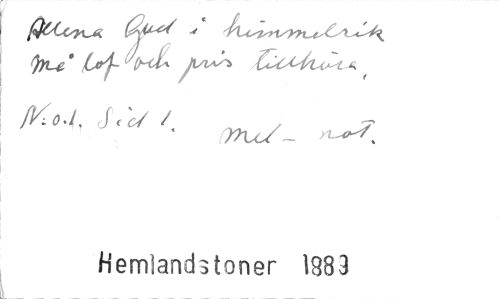 Allena Gud i himmelrik
må lof och pris tillhöra,
N:o.1. Sid 1. Mel- not.
Hemlandstoner 1889